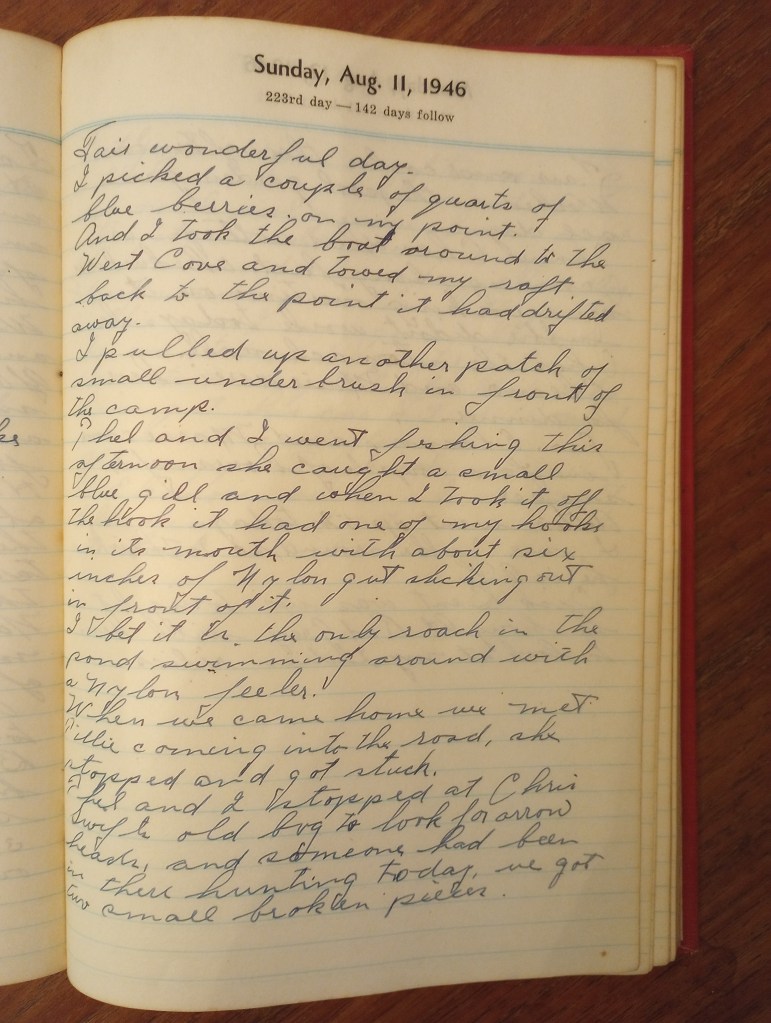 Sunday, Aug. 11, 1946
223rd day — 142 days follow
Fair wonderful day.
I picked a couple of quarts of
blue berries on my point.
And I took the boat around to the
West Cove and towed my raft
back to the point it had drifted
away.
I pulled up another patch of
small underbrush in front of
the camp.
Thel and I went fishing this
afternoon she caught a small
blue gill and when I took it off
the hook it had one of my hooks
in its mouth with about six
inches of Nylon gut sticking out
in front of it.
I bet it is the only roach in the
pond swimming around with
a Nylon feeler.
When we came home we met
Tillie coming into the road, she
stopped and got stuck.
Thel and I stopped at Chris
Swifts old bog to look for arrow
heads, and someone had been
in there hunting today, we got
two small broken pieces.